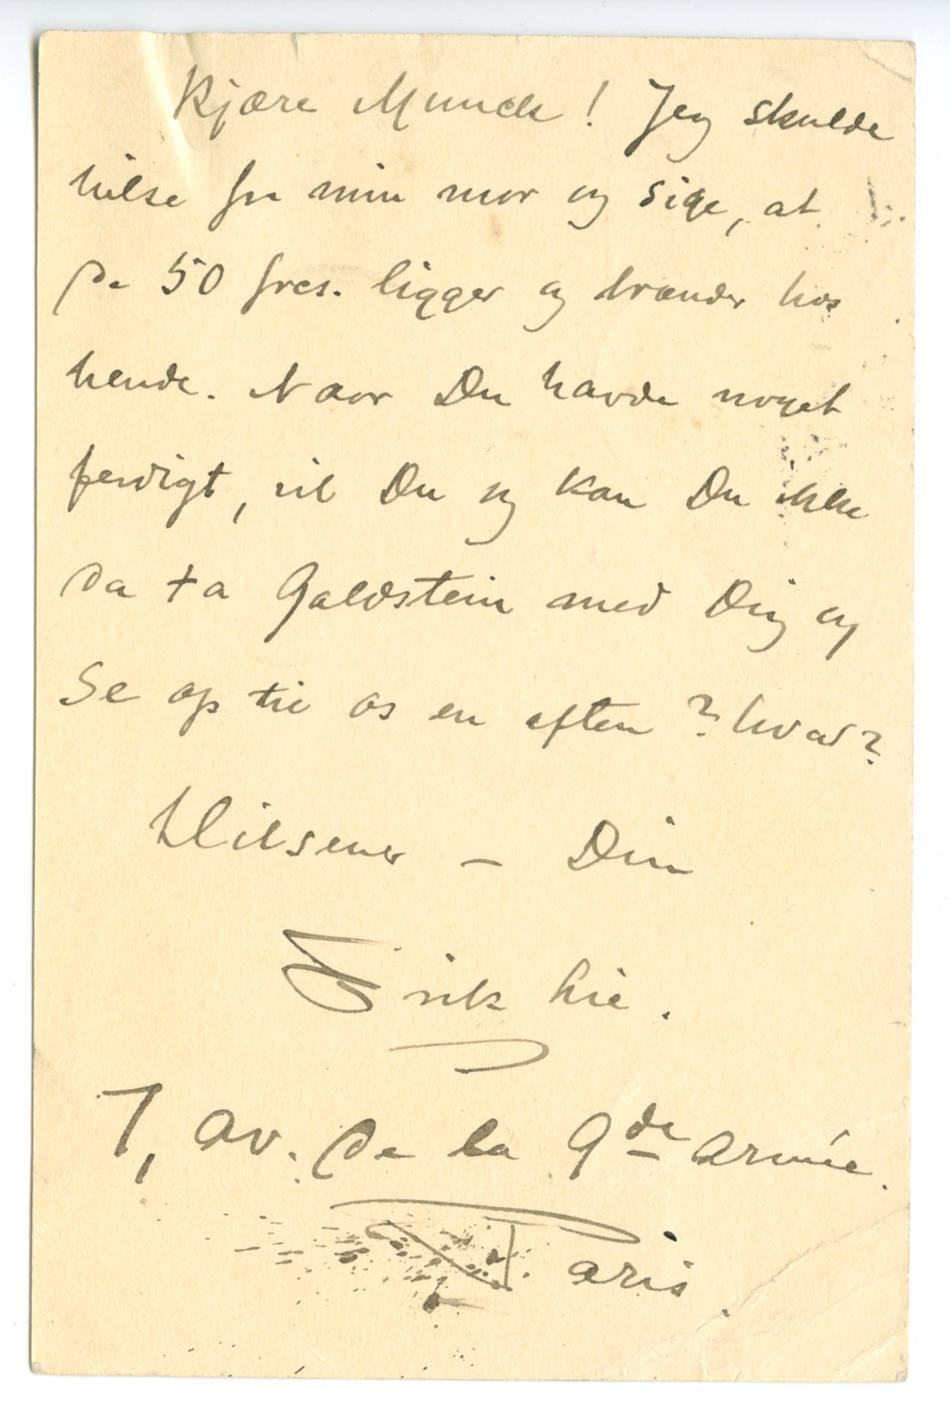 Kjære Munch! Jeg skulde
hilse fra min mor og sige, at
de 50 frcs. ligger og brænder hos
hende. Naar Du havde noget
ferdigt, vil Du og kan Du ikke
da ta Galdstein med Dig og
se op til os en aften? hvad?
Hilsener – Din
Erik Lie.
7, av. de la Gde Armée.
Paris.